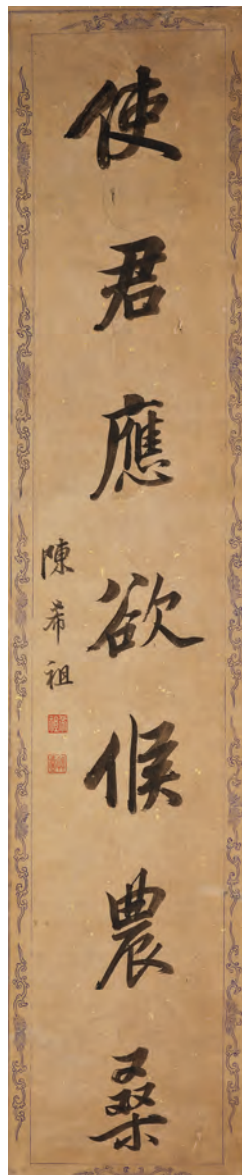 使君應欲候農桑
陳希祖